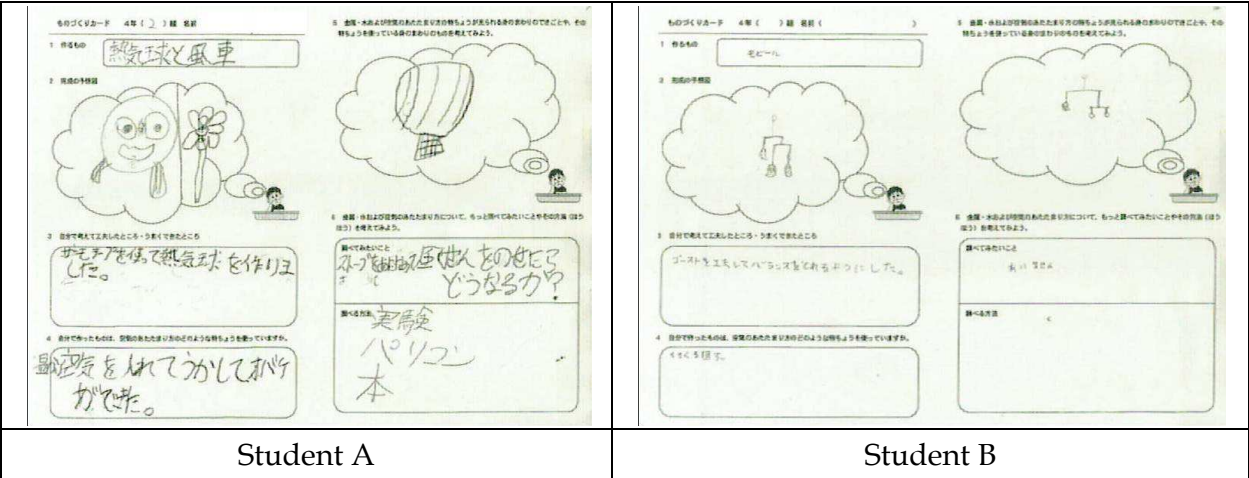 ものづくりカード 4年( 2 )組 名前
1 作るもの
熱気球と風車
2 完成の予想図
3 自分で考えて工夫したところ・うまくできたところ
サーモテープを使って熱気球を作りま
した。
4 自分で作ったものは、空気のあたたまり方のどのような特ちょうを使っていますか。
空気を入れてうかしてオバケ
ができた。
5 金属・水および空気のあたたまり方の特ちょうが見られる身のまわりのできごとや、その
特ちょうを使っている身のまわりのものを考えてみよう。
6 金属・水および空気のあたたまり方について、もっと調べてみたいことやその方法(ほう
ほう)を考えてみよう。
調べてみたいこと
風せんをのせた?
どうなるか?
調べる方法
実験
パソコン
本
ものづくりカード 4年( )組 名前( )
1 作るもの
モビール
2 完成の予想図
3 自分で考えて工夫したところ・うまくできたところ
ゴーストを工夫してバランスをとれるようにした。
4 自分で作ったものは、空気のあたたまり方のどのような特ちょうを使っていますか。
5 金属・水および空気のあたたまり方の特ちょうが見られる身のまわりのできごとや、その
特ちょうを使っている身のまわりのものを考えてみよう。
6 金属・水および空気のあたたまり方について、もっと調べてみたいことやその方法(ほう
ほう)を考えてみよう。
調べてみたいこと
ありません
調べる方法
Student A
Student B